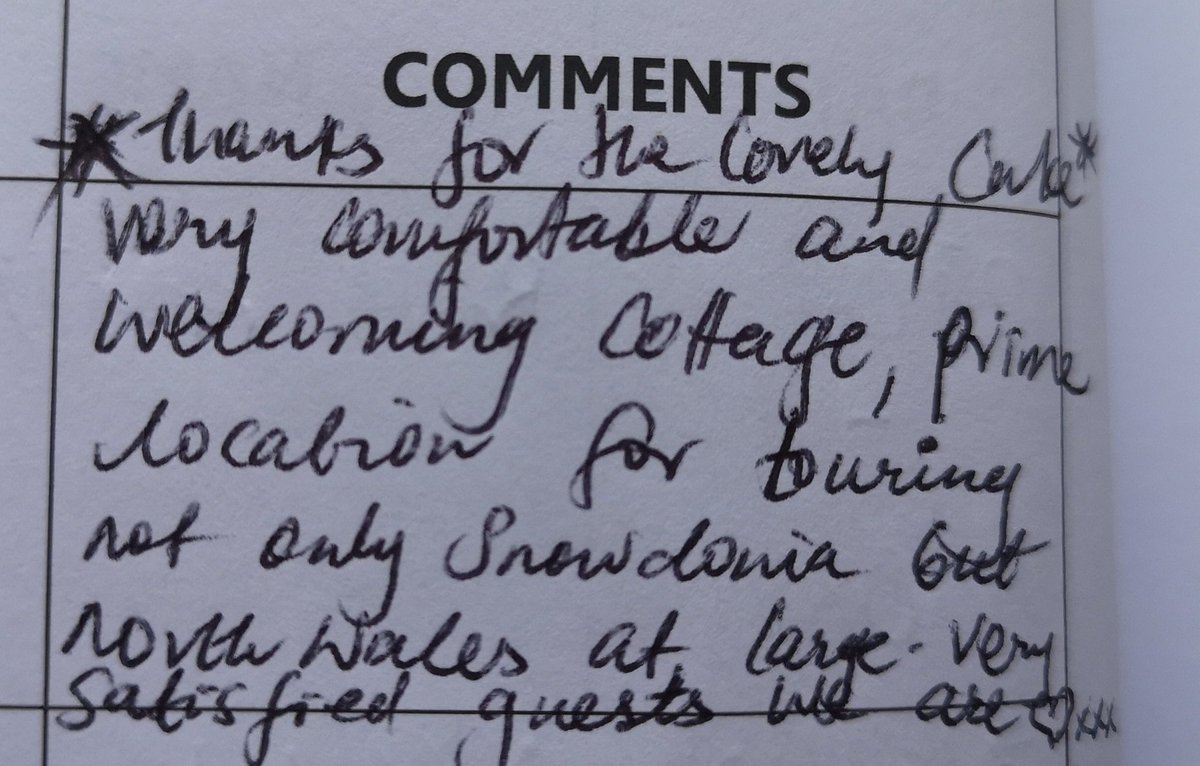 COMMENTS
*Thanks for the lovely Cake*
very comfortable and
welcoming Cottage, prime
location for touring
not only Snowdonia but
north Wales at large. Very
satisfied guests we are ♡xxx